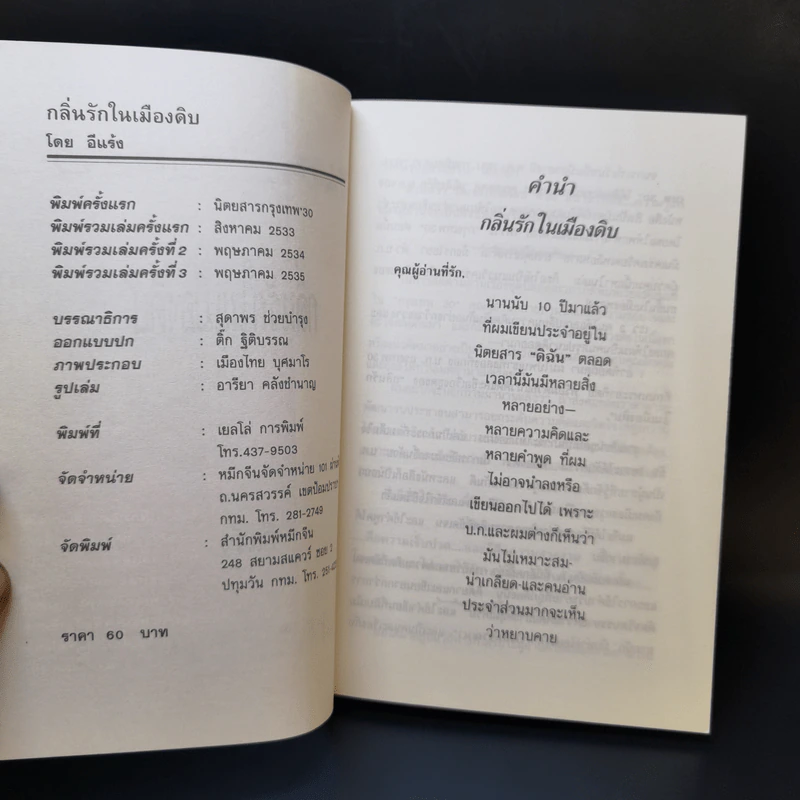 กลิ่นรักในเมืองดิบ
โดย อีแร้ง
พิมพ์ครั้งแรก : นิตยสารกรุงเทพ'30
พิมพ์รวมเล่มครั้งแรก : สิงหาคม 2533
พิมพ์รวมเล่มครั้งที่ 2 : พฤษภาคม 2534
พิมพ์รวมเล่มครั้งที่ 3 : พฤษภาคม 2535
บรรณาธิการ : สุดาพร ช่วยบำรุง
ออกแบบปก : ติ๊ก ฐิติบรรณ
ภาพประกอบ : เมืองไทย บุศมาโร
รูปเล่ม : อารียา คลังชำนาญ
พิมพ์ที่ : เยลโล่ การพิมพ์
โทร.437-9503
จัดจำหน่าย : หมึกจีนจัดจำหน่าย 101
ถ.นครสวรรค์ เขตป้อมปราบ
กทม. โทร. 281-2749
จัดพิมพ์ : สำนักพิมพ์หมึกจีน
248 สยามสแควร์ ซอย
ปทุมวัน กทม. โทร.
ราคา 60 บาท
คำนำ
กลิ่นรักในเมืองดิบ
คุณผู้อ่านที่รัก.
นานนับ 10 ปีมาแล้ว
ที่ผมเขียนประจำอยู่ใน
นิตยสาร "ดิฉัน" ตลอด
เวลานี้มันมีหลายสิ่ง
หลายอย่าง—
หลายความคิดและ
หลายคำพูด ที่ผม
ไม่อาจนำลงหรือ
เขียนออกไปได้ เพราะ
บ.ก.และผมต่างก็เห็นว่า
มันไม่เหมาะสม-
น่าเกลียด-และคนอ่าน
ประจำส่วนมากจะเห็น
ว่าหยาบคาย